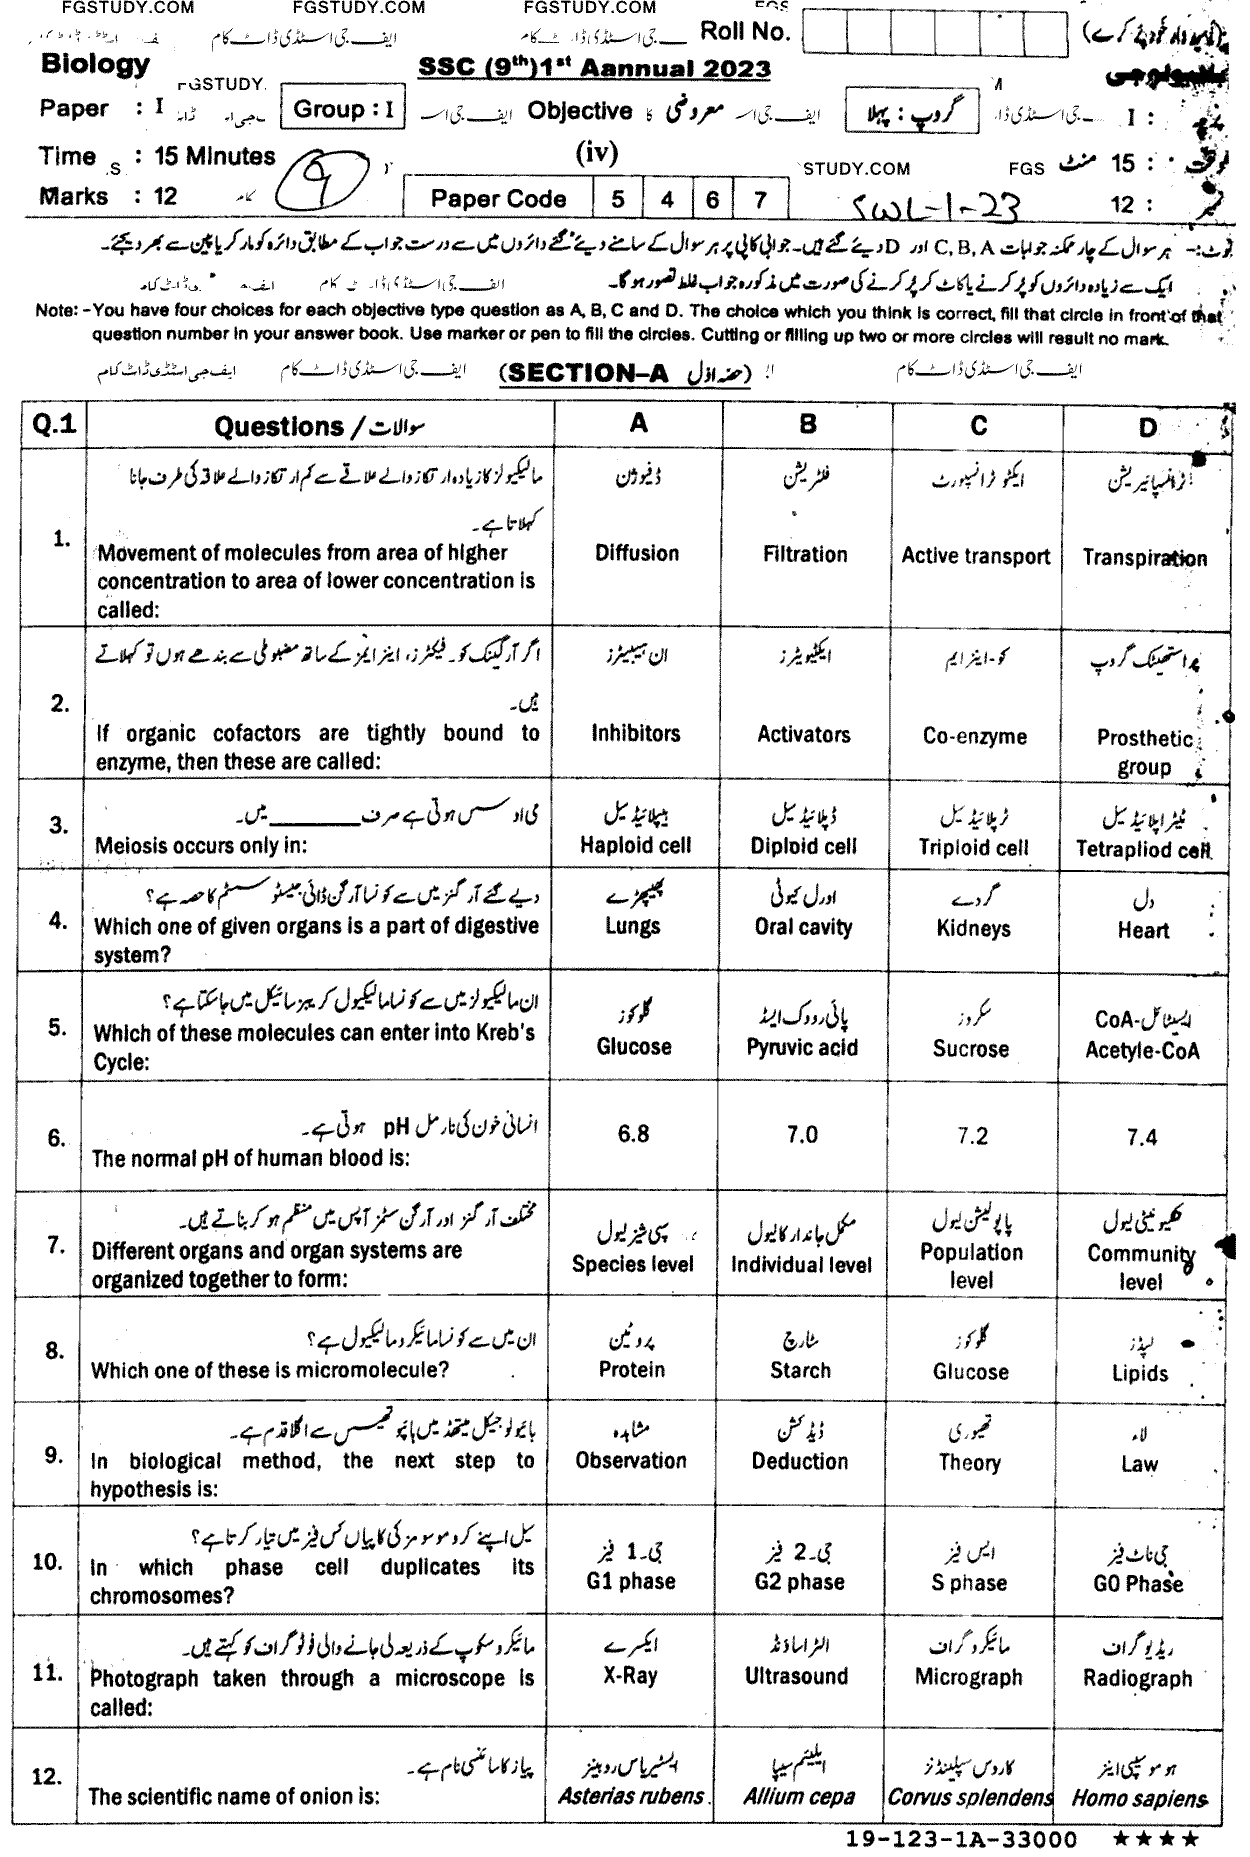 FGSTUDY.COM FGSTUDY.COM FGSTUDY.COM FGS
ایف جی اسٹڈی ڈاٹ کام Roll No.
Biology FGSTUDY. SSC (9th)1st Aannual 2023 بائیولوجی
Paper : I Group : I Objective معروضی کا گروپ : پہلا I : پرچہ
Time : 15 Minutes (iv) STUDY.COM FGS 15 منٹ : وقت
Marks : 12 9 Paper Code 5 4 6 7 SWL-1-23 12 : نمبر
نوٹ:- ہر سوال کے چار ممکنہ جوابات C, B, A اور D دیئے گئے ہیں۔ جوابی کاپی پر ہر سوال کے سامنے دیئے گئے دائروں میں سے درست جواب کے مطابق دائرہ کو مارکر یا پین سے بھر دیجئے۔
ایک سے زیادہ دائروں کو پُر کرنے یا کاٹ کر پُر کرنے کی صورت میں مذکورہ جواب غلط تصور ہو گا۔
Note: -You have four choices for each objective type question as A, B, C and D. The choice which you think is correct, fill that circle in front of that
question number in your answer book. Use marker or pen to fill the circles. Cutting or filling up two or more circles will result no mark.
ایف جی اسٹڈی ڈاٹ کام ایف جی اسٹڈی ڈاٹ کام (SECTION–A حصہ اوّل) ایف جی اسٹڈی ڈاٹ کام
Q.1 Questions / سوالات A B C D
مالیکیولز کا زیادہ ارتکاز والے علاقے سے کم ارتکاز والے علاقہ کی طرف جانا ڈفیوژن فلٹریشن ایکٹو ٹرانسپورٹ ٹرانسپائیریشن
کہلاتا ہے۔
1. Movement of molecules from area of higher Diffusion Filtration Active transport Transpiration
concentration to area of lower concentration is
called:
اگر آرگینک کو۔فیکٹرز، اینزائمز کے ساتھ مضبوطی سے بندھے ہوں تو کہلاتے ان ہیبیٹرز ایکٹیویٹرز کو-اینزائم پراستھیٹک گروپ
2. ہیں۔
If organic cofactors are tightly bound to Inhibitors Activators Co-enzyme Prosthetic
enzyme, then these are called: group
3. می اوسس ہوتی ہے صرف ________ میں۔ ہیپلائیڈ سیل ڈپلائیڈ سیل ٹرپلائیڈ سیل ٹیٹراپلائیڈ سیل
Meiosis occurs only in: Haploid cell Diploid cell Triploid cell Tetrapliod cell
دیے گئے آرگنز میں سے کونسا آرگن ڈائی جیسٹو سسٹم کا حصہ ہے؟ پھیپھڑے اورل کیوٹی گردے دل
4. Which one of given organs is a part of digestive Lungs Oral cavity Kidneys Heart
system?
ان مالیکیولز میں سے کونسا مالیکیول کریبز سائیکل میں جاسکتا ہے؟ گلوکوز پائی رووک ایسڈ سکروز ایسیٹائل-CoA
5. Which of these molecules can enter into Kreb's Glucose Pyruvic acid Sucrose Acetyle-CoA
Cycle:
6. انسانی خون کی نارمل pH ہوتی ہے۔ 6.8 7.0 7.2 7.4
The normal pH of human blood is:
مختلف آرگنز اور آرگن سسٹمز آپس میں منظم ہو کر بناتے ہیں۔ سپی شیز لیول مکمل جاندار کا لیول پاپولیشن لیول کمیونیٹی لیول
7. Different organs and organ systems are Species level Individual level Population Community
organized together to form: level level
8. ان میں سے کونسا مائیکرومالیکیول ہے؟ پروٹین سٹارچ گلوکوز لپڈز
Which one of these is micromolecule? Protein Starch Glucose Lipids
بائیولوجیکل میتھڈ میں ہائپوتھیسس سے اگلا قدم ہے۔ مشاہدہ ڈیڈکشن تھیوری لاء
9. In biological method, the next step to Observation Deduction Theory Law
hypothesis is:
سیل اپنے کروموسومز کی کاپیاں کس فیز میں تیار کرتا ہے؟ جی۔1 فیز جی۔2 فیز ایس فیز جی ناٹ فیز
10. In which phase cell duplicates its G1 phase G2 phase S phase G0 Phase
chromosomes?
مائیکروسکوپ کے ذریعہ لی جانے والی فوٹوگراف کو کہتے ہیں۔ ایکسرے الٹراساؤنڈ مائیکروگراف ریڈیوگراف
11. Photograph taken through a microscope is X-Ray Ultrasound Micrograph Radiograph
called:
12. پیاز کا سائنسی نام ہے۔ ایسٹیریاس روبینز ایلیئم سیپا کاروس سپلینڈنز ہومو سیپی اینز
The scientific name of onion is: Asterias rubens Allium cepa Corvus splendens Homo sapiens
19-123-1A-33000 ★★★★